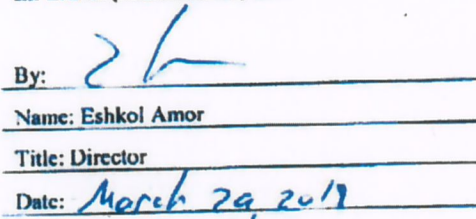 By:
Name: Eshkol Amor
Title: Director
Date: March 29 2019